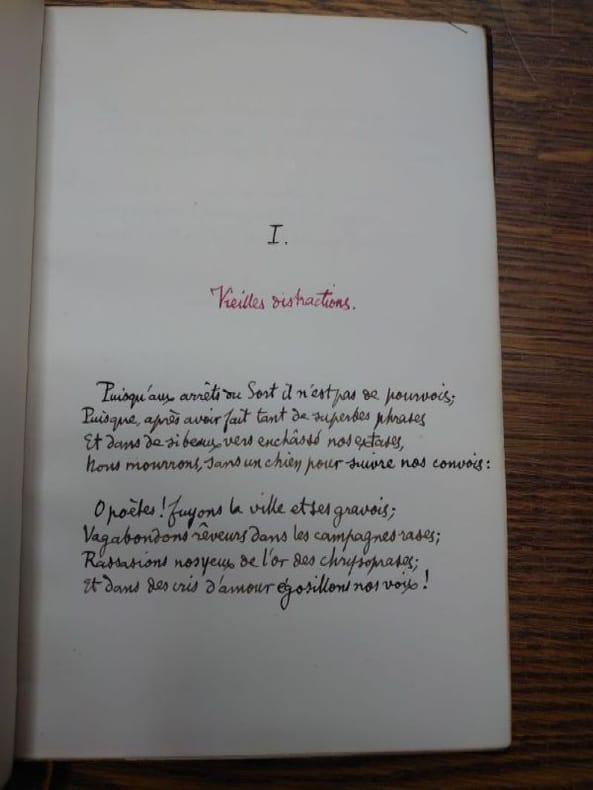 I.
Vieilles distractions.
Puisqu'aux arrêts du Sort il n'est pas de pourvois;
Puisque, après avoir fait tant de superbes phrases
Et dans de si beaux vers enchâssé nos extases,
Nous mourrons, sans un chien pour suivre nos convois:
O poètes! fuyons la ville et ses gravois;
Vagabondons rêveurs dans les campagnes rases;
Rassasions nos yeux de l'or des chrysoprases;
Et dans des cris d'amour égosillons nos voix!